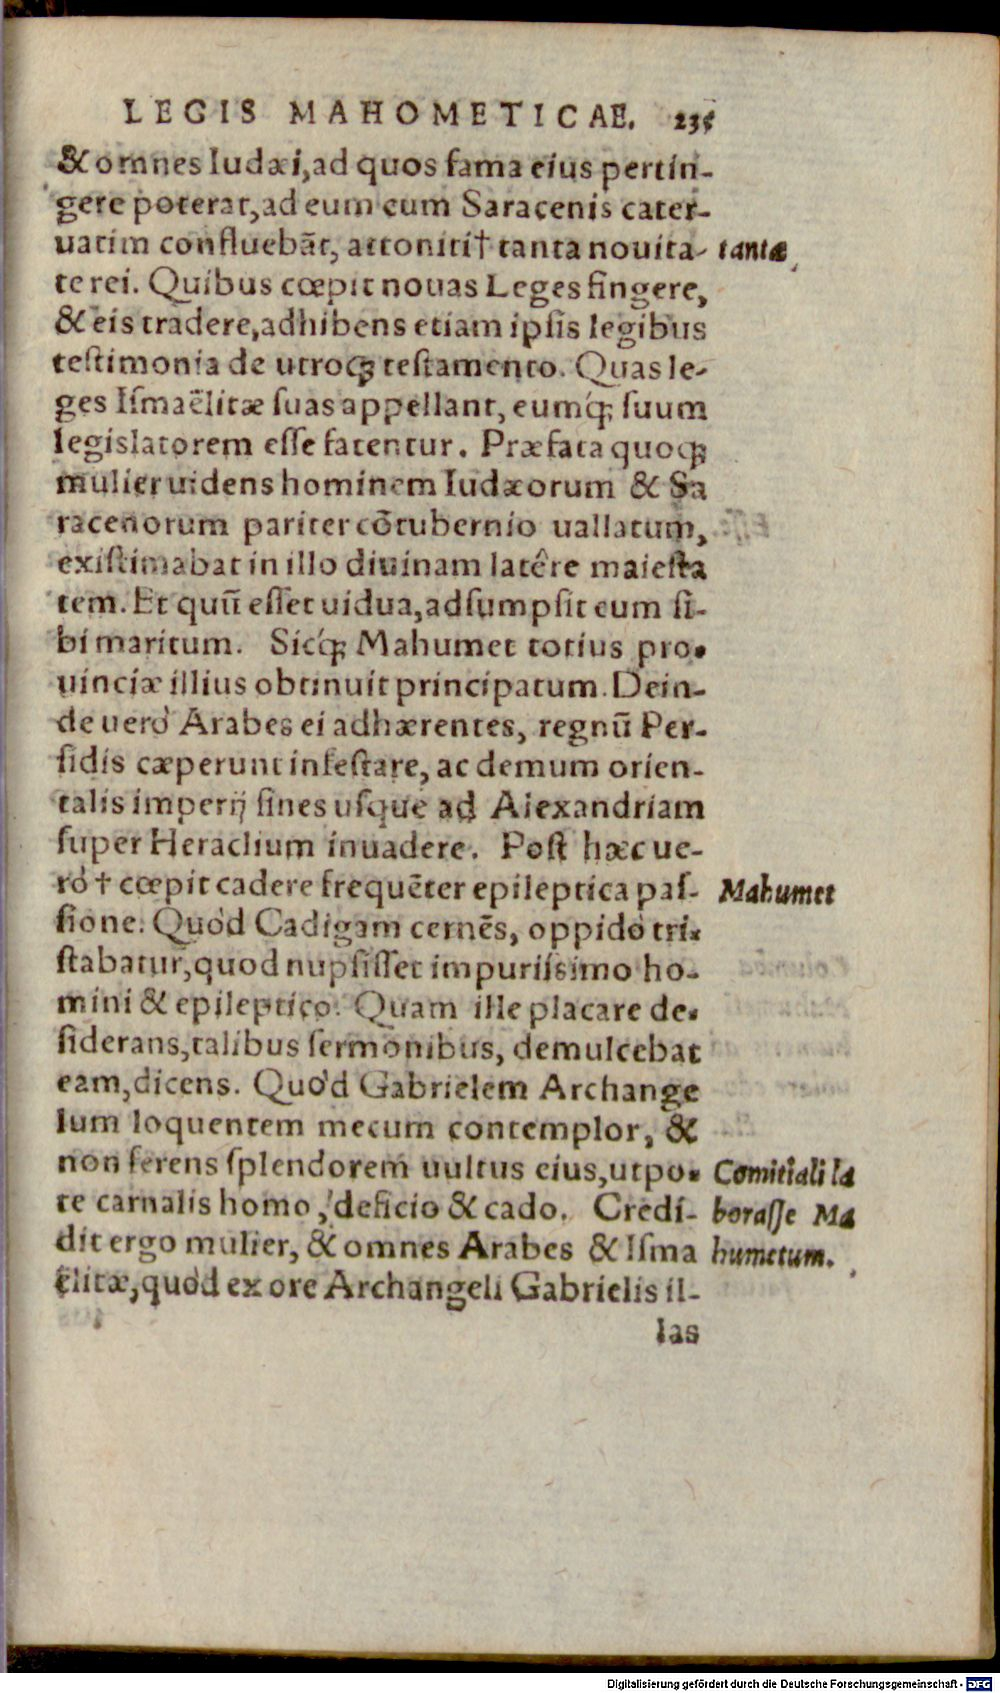 LEGIS MAHOMETICAE. 235
& omnes Iudæi, ad quos fama eius pertin-
gere poterat, ad eum cum Saracenis cater-
uatim confluebãt, attoniti† tanta nouita- tantæ
te rei. Quibus cœpit nouas Leges fingere,
& eis tradere, adhibens etiam ipsis legibus
testimonia de utroq́ꝫ testamento. Quas le-
ges Ismaëlitæ suas appellant, eumq́ꝫ suum
legislatorem esse fatentur. Præfata quoqꝫ
mulier uidens hominem Iudæorum & Sa
racenorum pariter cõtubernio uallatum,
existimabat in illo diuinam latêre maiesta
tem. Et quũ esset uidua, adsumpsit eum si-
bi maritum. Sicq́ꝫ Mahumet totius pro-
uinciæ illius obtinuit principatum. Dein-
de uerò Arabes ei adhærentes, regnũ Per-
sidis cæperunt infestare, ac demum orien-
talis imperij fines usque ad Alexandriam
super Heraclium inuadere. Post hæc ue-
rò † cœpit cadere frequẽter epileptica pas- Mahumet
sione. Quòd Cadigam cernẽs, oppidò tri-
stabatur, quod nupsisset impurissimo ho-
mini & epileptico. Quam ille placare de-
siderans, talibus sermonibus, demulcebat
eam, dicens. Quòd Gabrielem Archange
lum loquentem mecum contemplor, &
non ferens splendorem uultus eius, utpo- Comitiali la
te carnalis homo, deficio & cado. Credi- borasse Ma
dit ergo mulier, & omnes Arabes & Isma humetum.
ëlitæ, quòd ex ore Archangeli Gabrielis il-
las
Digitalisierung gefördert durch die Deutsche Forschungsgemeinschaft - DFG